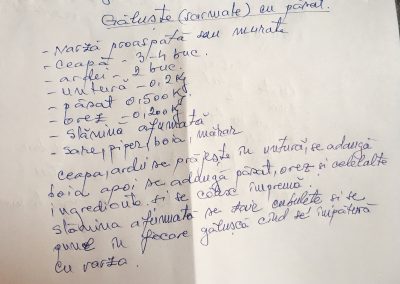 Găluște (sarmale) cu păsat.
- Varză proaspătă sau murată
- Ceapă - 3-4 buc.
- ardei - 2 buc.
- untură - 0,2 kg
- păsat 0,500 kg.
- orez - 0,200 kg
- Slănina afumată
- sare, piper, boia, mărar
ceapa, ardei se prăjește în untură, se adaugă
boia apoi se adaugă păsat, orez și celelalte
ingrediente și se călesc împreună.
slănina afumată se taie cubulețe și se
pune în fiecare gălușcă cînd se împătură
cu varza.